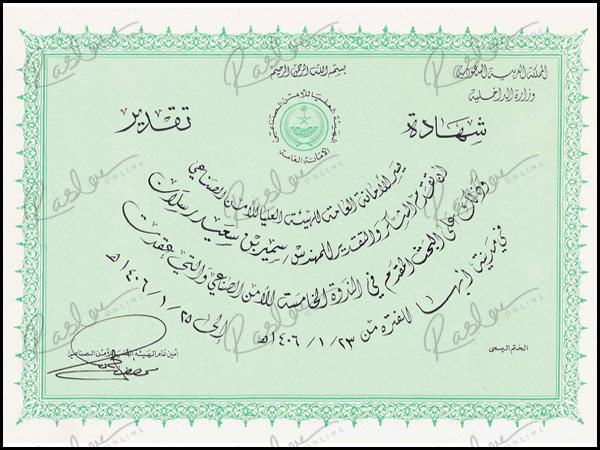 بسم الله الرحمن الرحيم
المملكة العربية السعودية
وزارة الداخلية
الهيئة العليا للأمن الصناعي
الأمانة العامة
شهادة تقدير
يسر الأمانة العامة للهيئة العليا للأمن الصناعي
أن تقدم الشكر والتقدير للمهندس سمير بن سعيد رسلان
وذلك على البحث المقدم في الندوة الخامسة للأمن الصناعي والتي عقدت
في مدينة أبها للفترة من ٢٣ / ١ / ١٤٠٦هـ إلى ٢٥ / ١ / ١٤٠٦هـ
الختم الرسمي
أمين عام الهيئة العليا للأمن الصناعي
Raslan
ONLINE